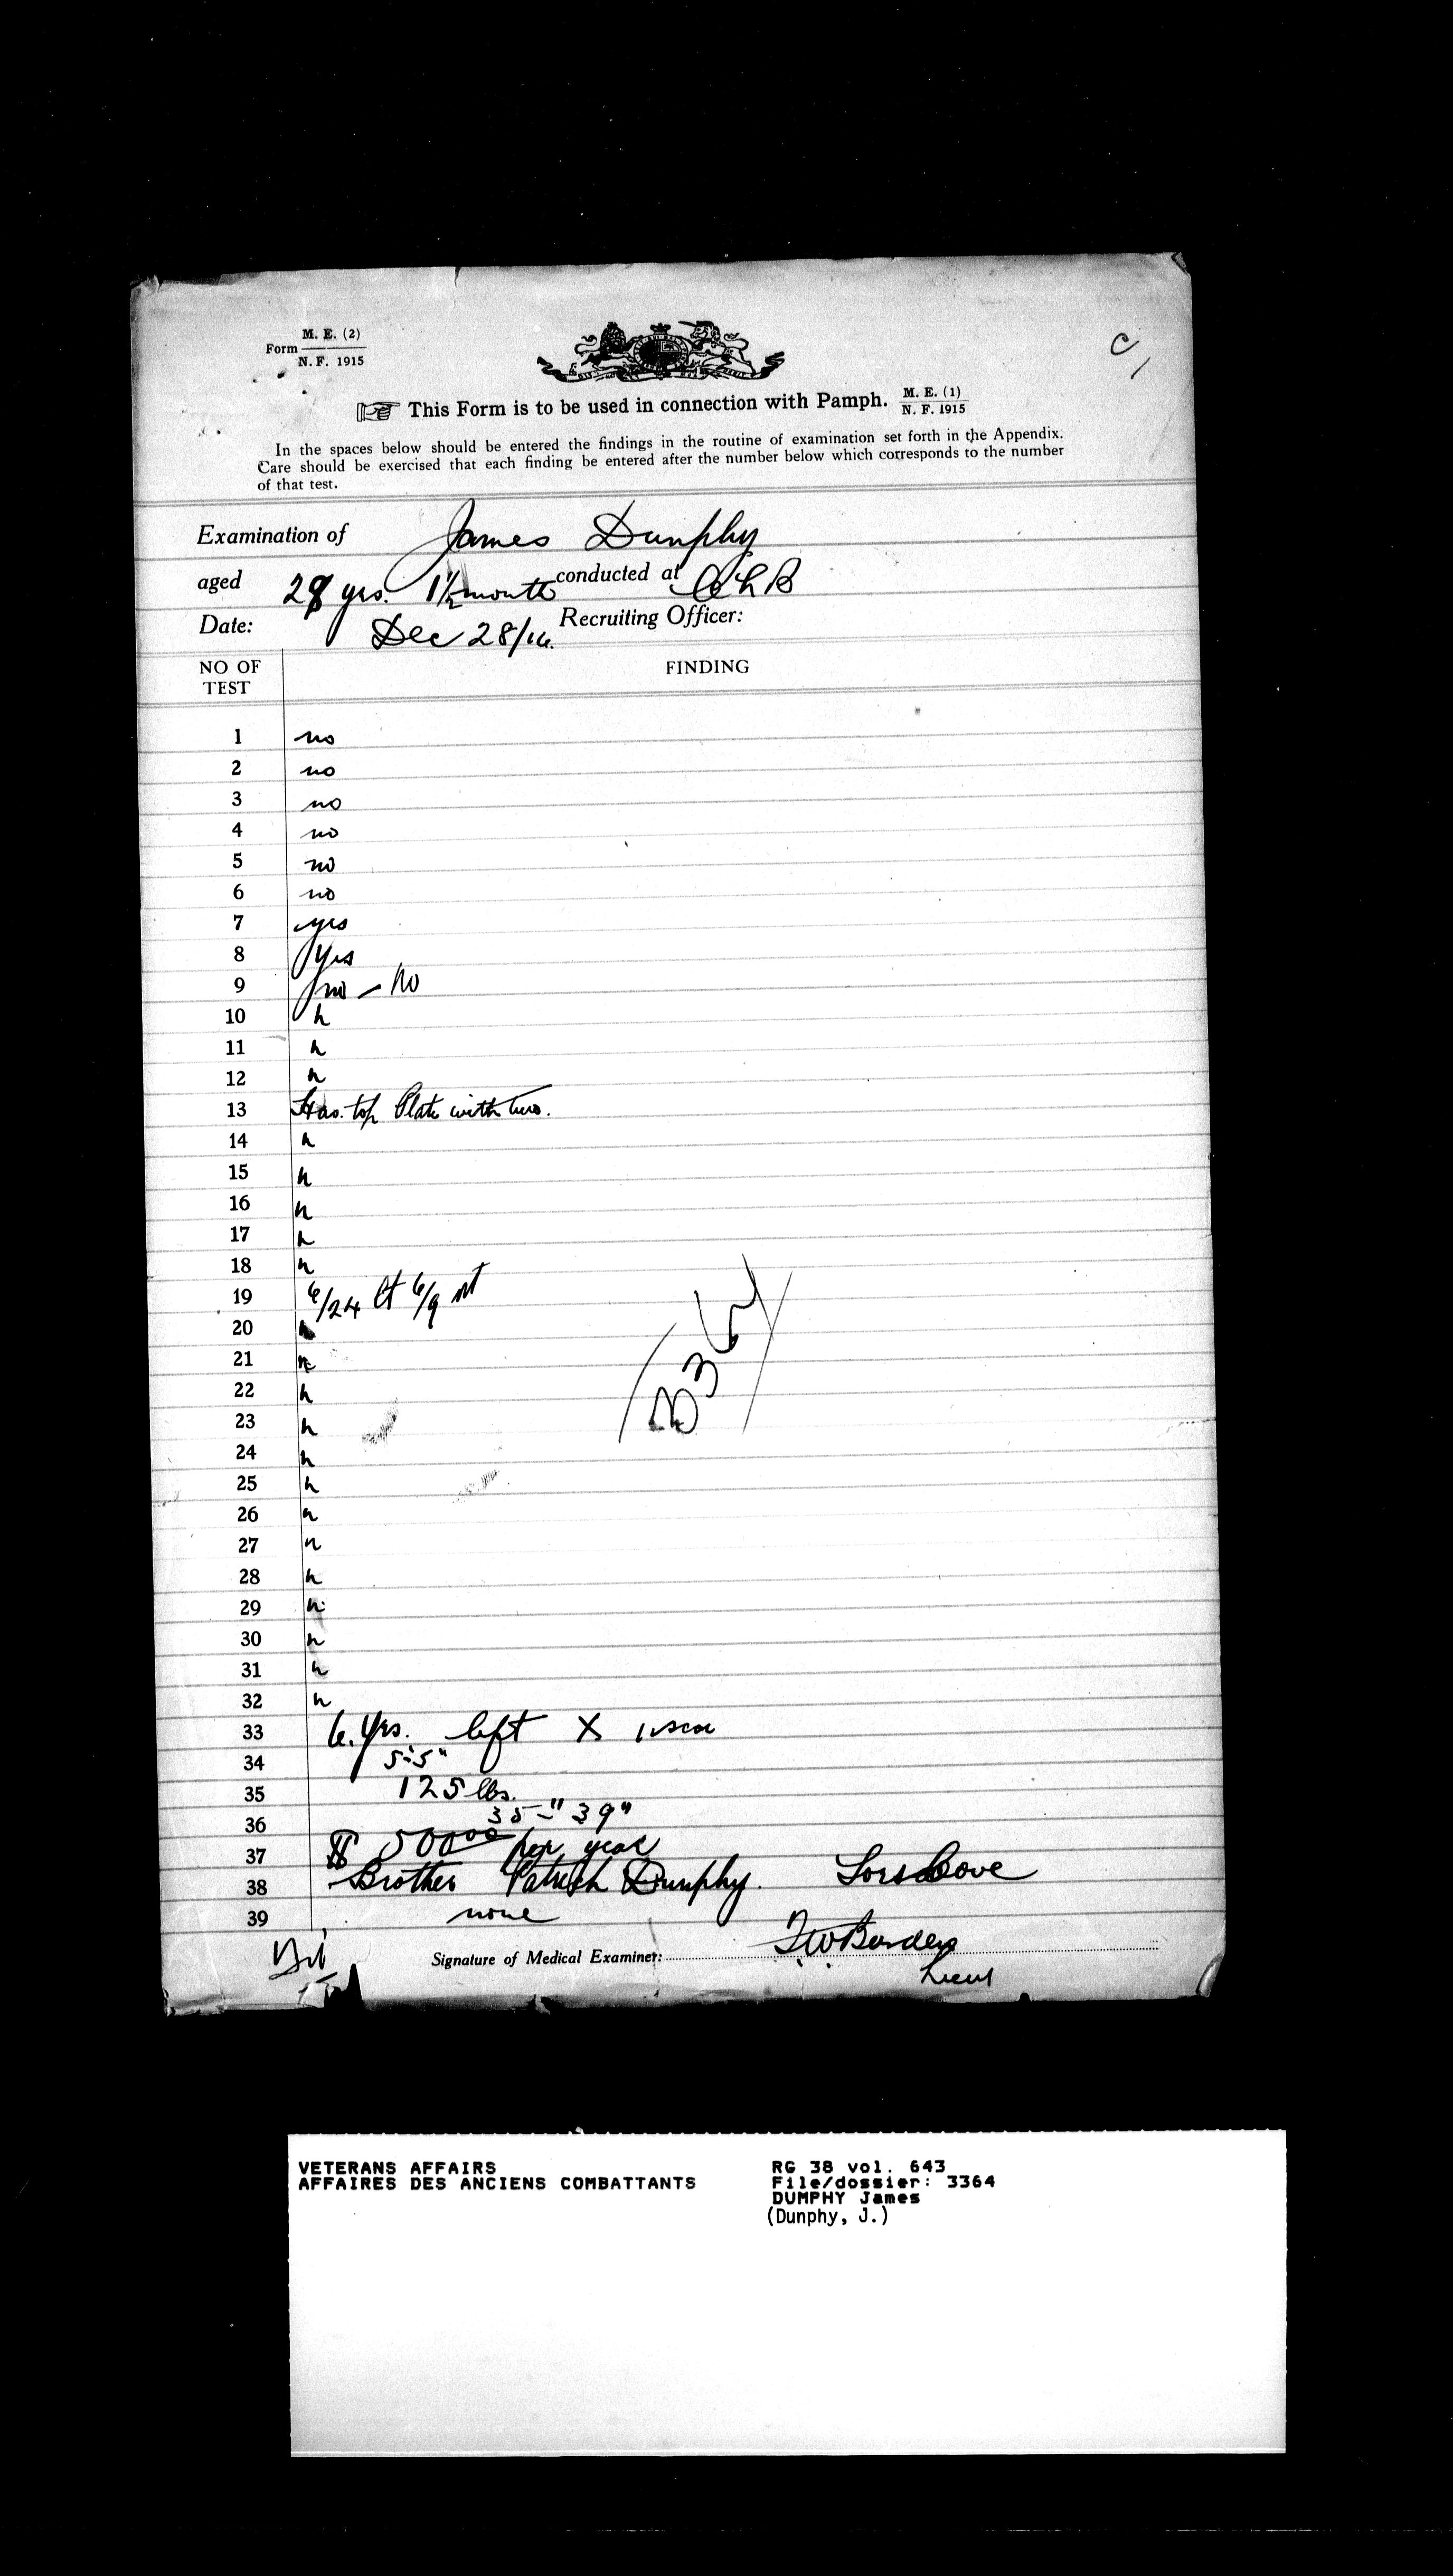 Form M. E. (2)
N. F. 1915
C
This Form is to be used in connection with Pamph. M. E. (1)
N. F. 1915
In the spaces below should be entered the findings in the routine of examination set forth in the Appendix.
Care should be exercised that each finding be entered after the number below which corresponds to the number
of that test.
Examination of James Dunphy
aged 28 yrs. 1½ month conducted at C L B
Date: Dec 28/16. Recruiting Officer:
NO OF TEST FINDING
1 no
2 no
3 no
4 no
5 no
6 no
7 yes
8 yes
9 no - No
10 n
11 n
12 n
13 Has top Plate with two.
14 n
15 n
16 n
17 n
18 n
19 6/24 lt 6/9 rt
20 n
21 n
22 n
23 n
24 n
25 n
26 n
27 n
28 n
29 n
30 n
31 n
32 n
33 6. Yrs. left X 1 scar
34 5'5"
35 125 lbs.
36 35" 39"
37 $ 500 00 per year
38 Brother Patrick Dunphy. Lors Cove
39 none
Signature of Medical Examiner: Burden
Lieut
VETERANS AFFAIRS
AFFAIRES DES ANCIENS COMBATTANTS
RG 38 vol. 643
File/dossier: 3364
DUMPHY James
(Dunphy, J.)